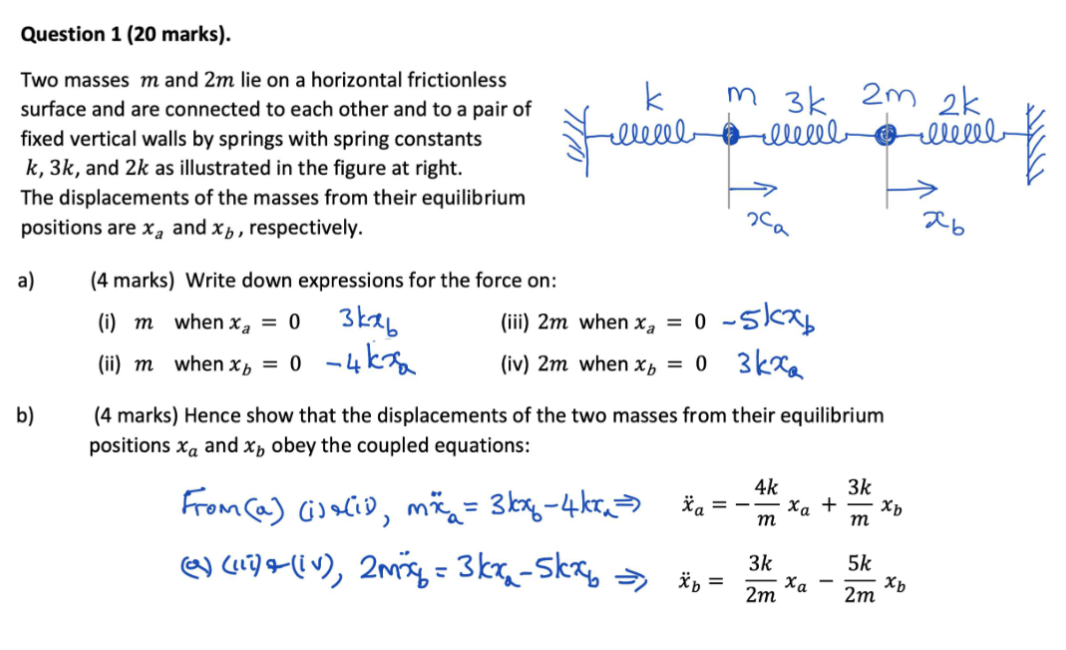 Question 1 (20 marks).
Two masses m and 2m lie on a horizontal frictionless
surface and are connected to each other and to a pair of
fixed vertical walls by springs with spring constants
k, 3k, and 2k as illustrated in the figure at right.
The displacements of the masses from their equilibrium
positions are xₐ and x_b, respectively.
k m 3k 2m 2k
xₐ x_b
a) (4 marks) Write down expressions for the force on:
(i) m when xₐ = 0 3kx_b (iii) 2m when xₐ = 0 -5kx_b
(ii) m when x_b = 0 -4kxₐ (iv) 2m when x_b = 0 3kxₐ
b) (4 marks) Hence show that the displacements of the two masses from their equilibrium
positions xₐ and x_b obey the coupled equations:
From (a) (i) & (ii), mẍₐ = 3kx_b - 4kxₐ ⇒ ẍₐ = - 4k/m xₐ + 3k/m x_b
(a) (iii) & (iv), 2mẍ_b = 3kxₐ - 5kx_b ⇒ ẍ_b = 3k/2m xₐ - 5k/2m x_b